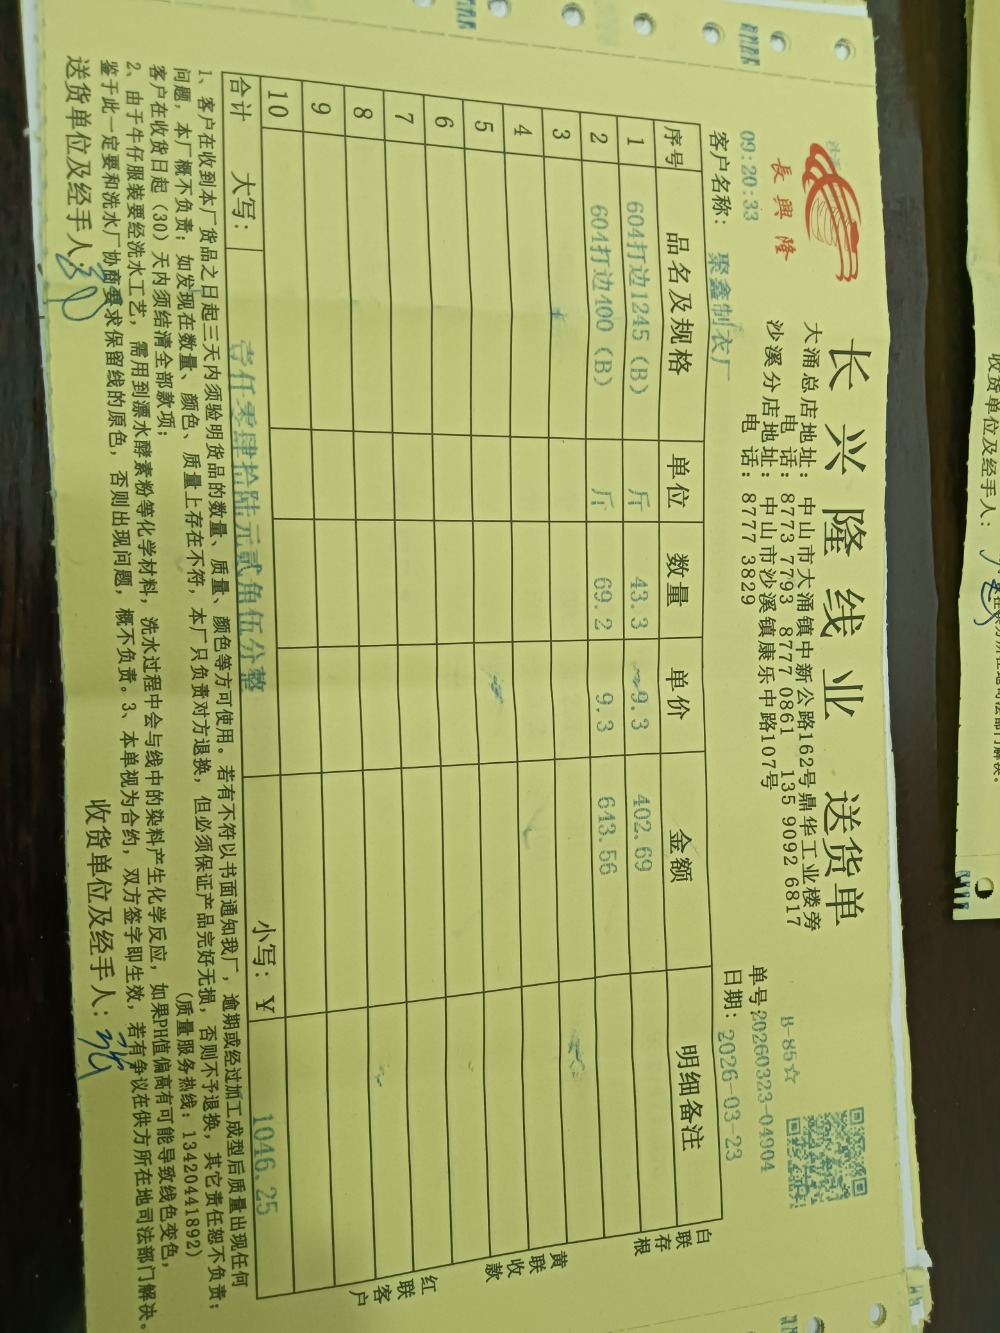 長興隆
长兴隆线业 送货单
大涌总店地址: 中山市大涌镇中新公路162号鼎华工业楼旁
电 话: 8773 7793 8777 0861 135 9092 6817
沙溪分店地址: 中山市沙溪镇康乐中路107号
电 话: 8777 3829
B-85☆
单号:20260323-04904
09:20:33
客户名称: 聚鑫制衣厂
日期: 2026-03-23
序号 品名及规格 单位 数量 单价 金额 明细备注
1 604打边1245 (B) 斤 43.3 9.3 402.69
2 604打边400 (B) 斤 69.2 9.3 643.56
3
4
5
6
7
8
9
10
合计 大写: 壹仟零肆拾陆元贰角伍分整 小写: ¥ 1046.25
白联存根
黄联收款
红联客户
1、客户在收到本厂货品之日起三天内须验明货品的数量、质量、颜色等方可使用。若有不符以书面通知我厂，逾期或经过加工成型后质量出现任何
问题，本厂概不负责；如发现在数量、颜色、质量上存在不符，本厂只负责对方退换，但必须保证产品完好无损，否则不予退换，其它责任恕不负责；
客户在收货日起（30）天内须结清全部款项； (质量服务热线: 13420441892)
2、由于牛仔服装要经洗水工艺，需用到漂水酵素粉等化学材料，洗水过程中会与线中的染料产生化学反应，如果PH值偏高有可能导致线色变色，
鉴于此一定要和洗水厂协商要求保留线的原色，否则出现问题，概不负责。3、本单视为合约，双方签字即生效，若有争议在供方所在地司法部门解决。
送货单位及经手人:
收货单位及经手人:
收货单位及经手人: